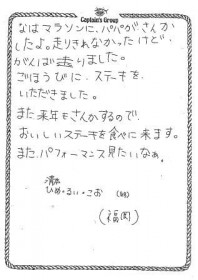 Captain's Group
なはマラソンに、パパがさんか
したよ。走りきれなかったけど、
がんばりました。
ごほうびに、ステーキを、
いただきました。
また来年もさんかするので、
おいしいステーキを食べに来ます。
また、パフォーマンス見たいなぁ。
清水
ひめ・るい・こお
(福岡)